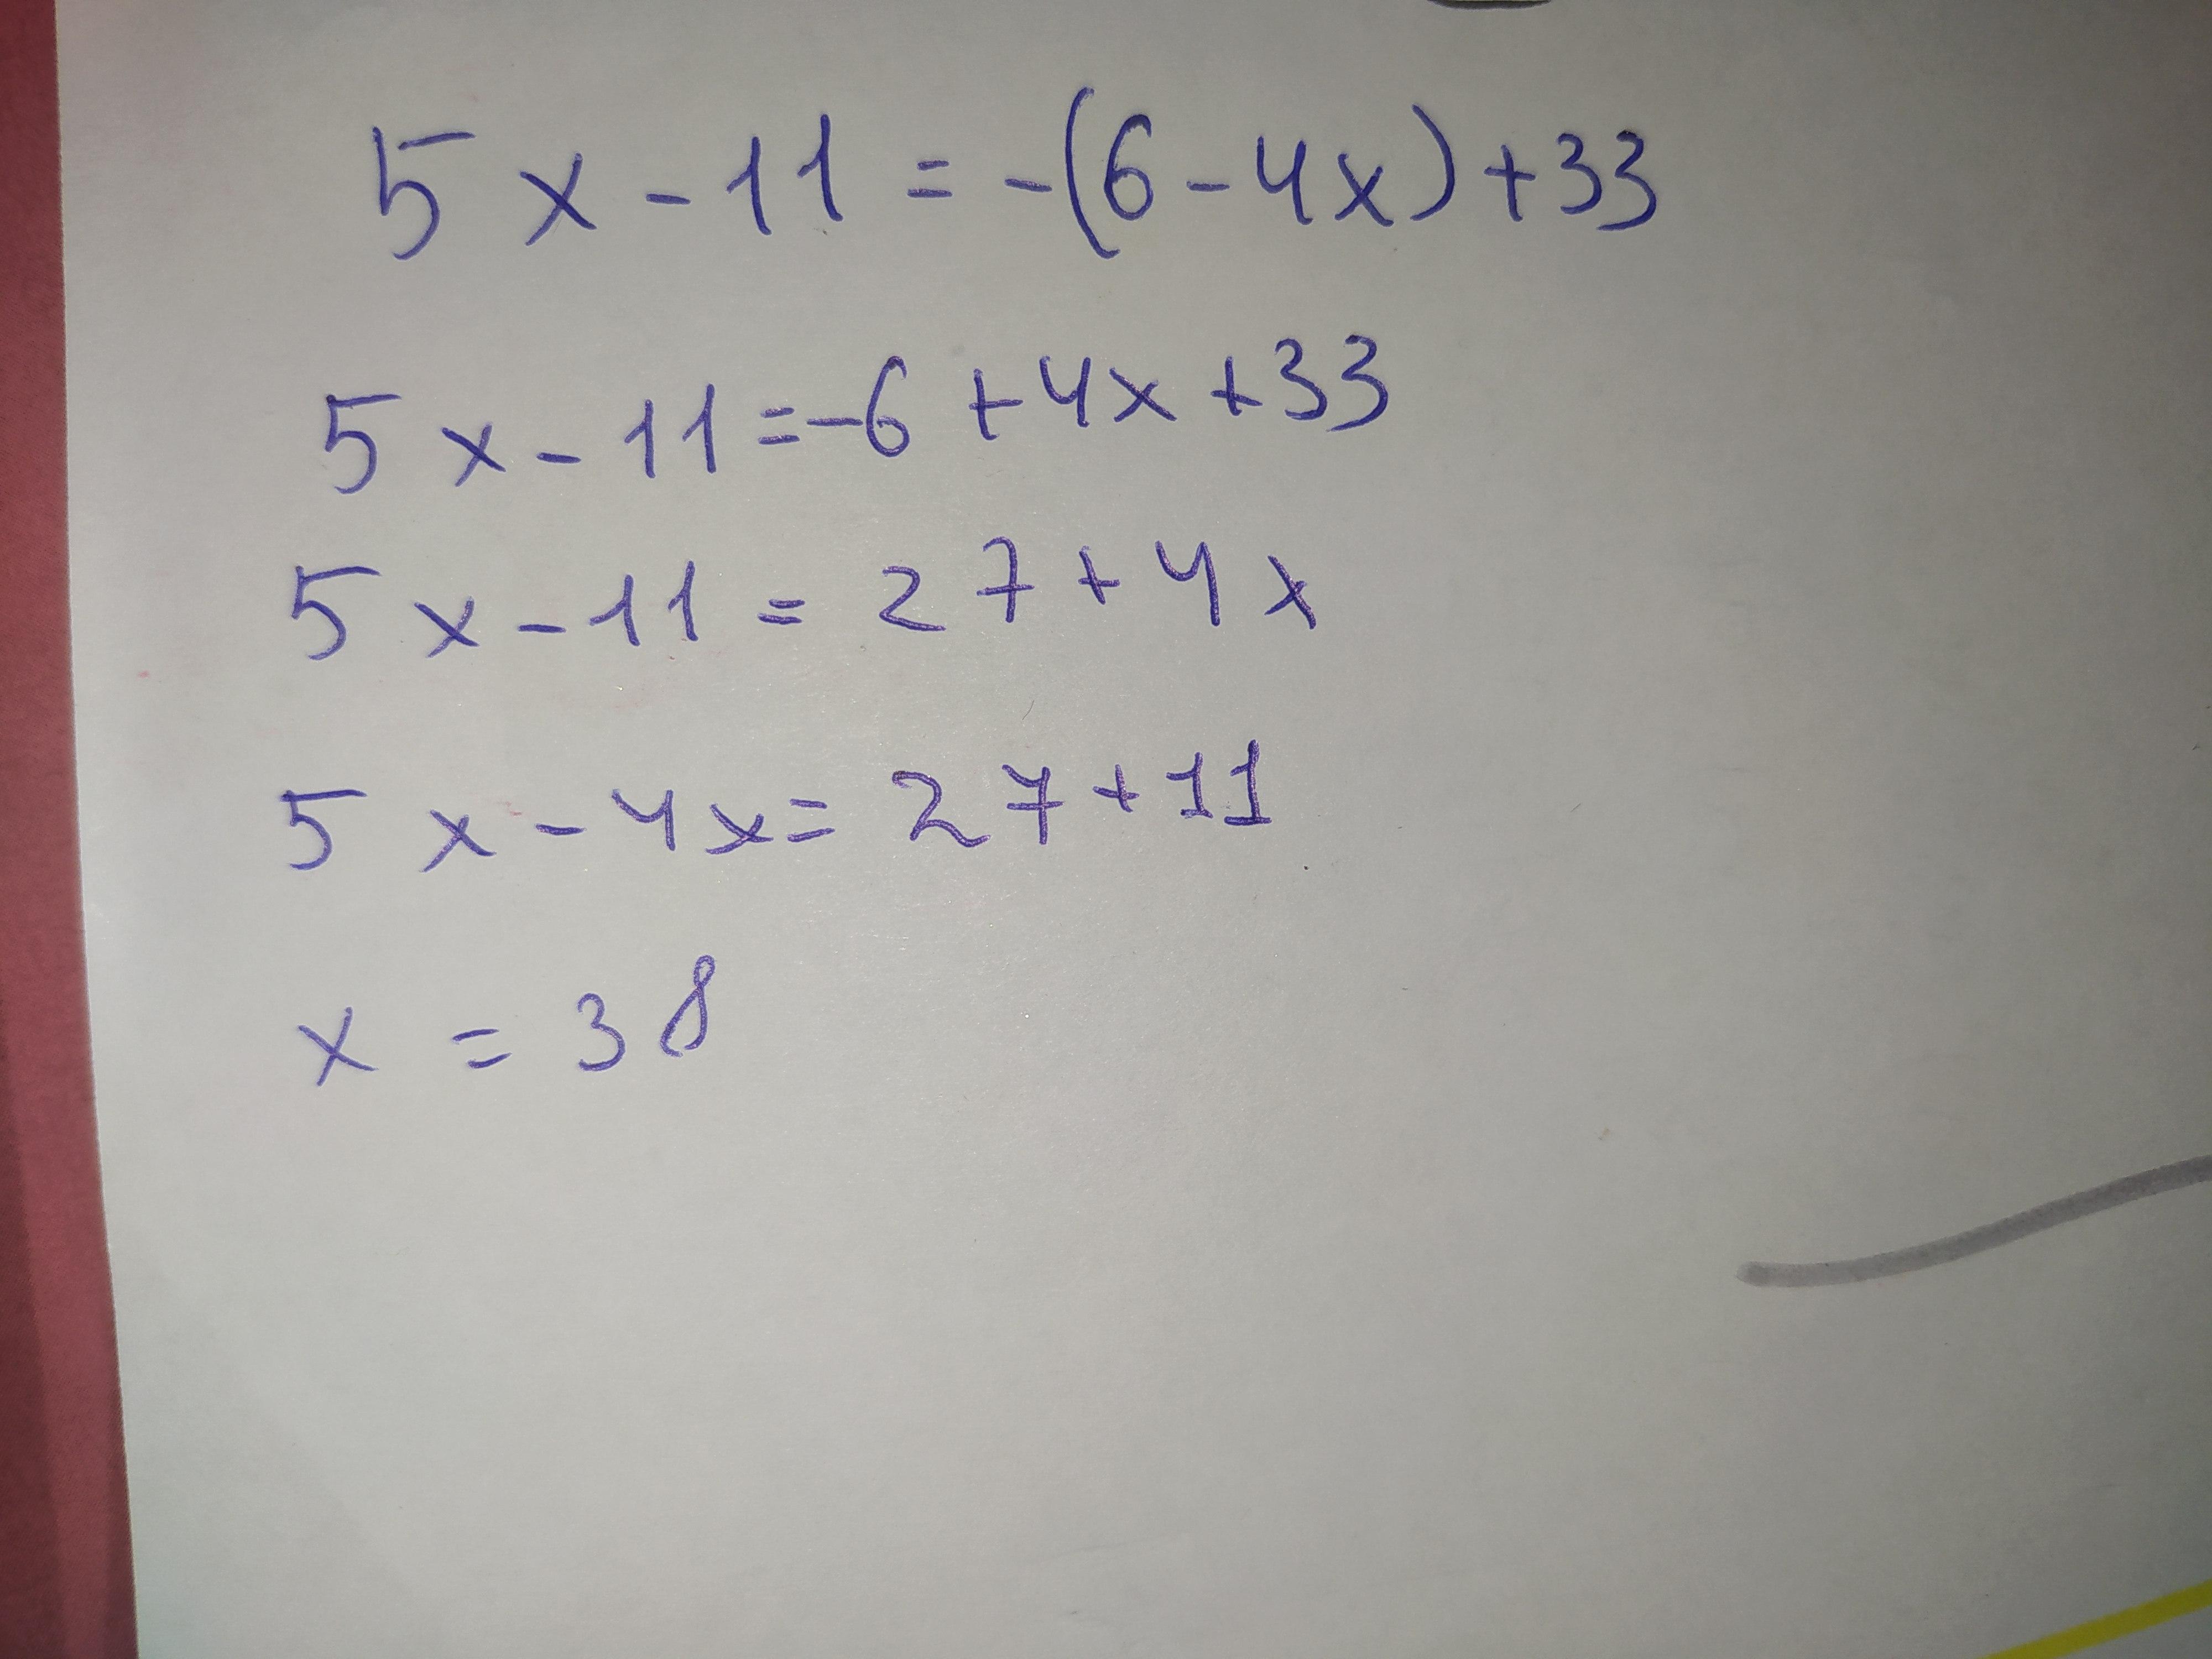 5x - 11 = -(6 - 4x) + 33
5x - 11 = -6 + 4x + 33
5x - 11 = 27 + 4x
5x - 4x = 27 + 11
x = 38